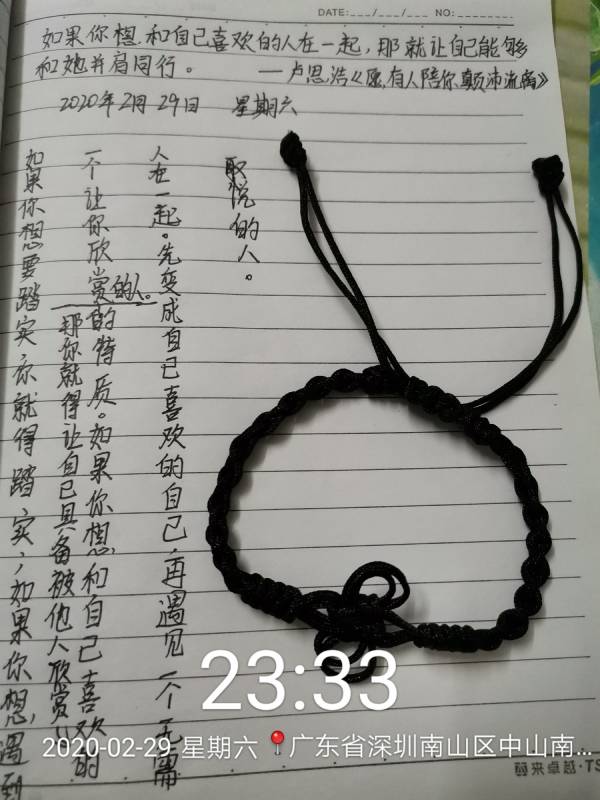 DATE:___/___/___ NO:________
如果你想和自己喜欢的人在一起，那就让自己能够
和她并肩同行。 ——卢思浩《愿有人陪你颠沛流离》
2020年2月29日 星期六
如果你想要踏实，你就得踏实，如果你想，遇到
一个让你欣赏的人。
那你就得让自己具备被他人欣赏
的特质。如果你想和自己喜欢的
人在一起。先变成自己喜欢的自己，再遇见一个无需
取悦的人。
23:33
2020-02-29 星期六 📍广东省深圳南山区中山南...
蔚来卓越·TS